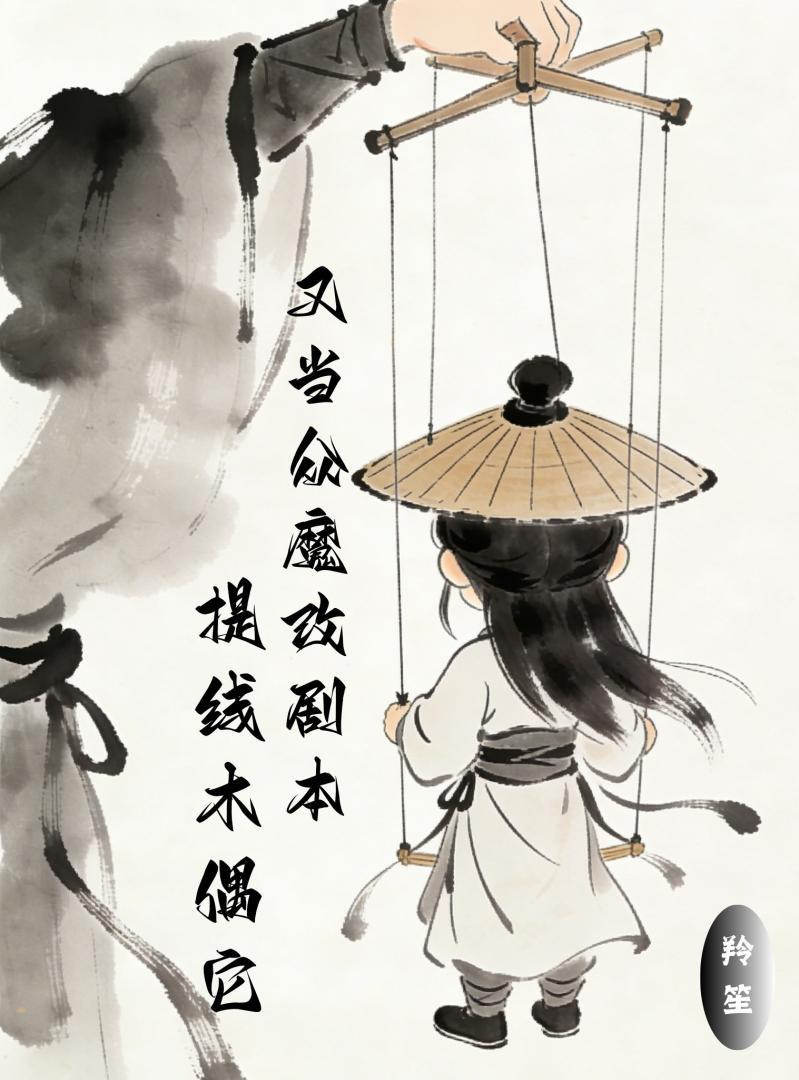 又当众魔改剧本
提线木偶它
羚笙